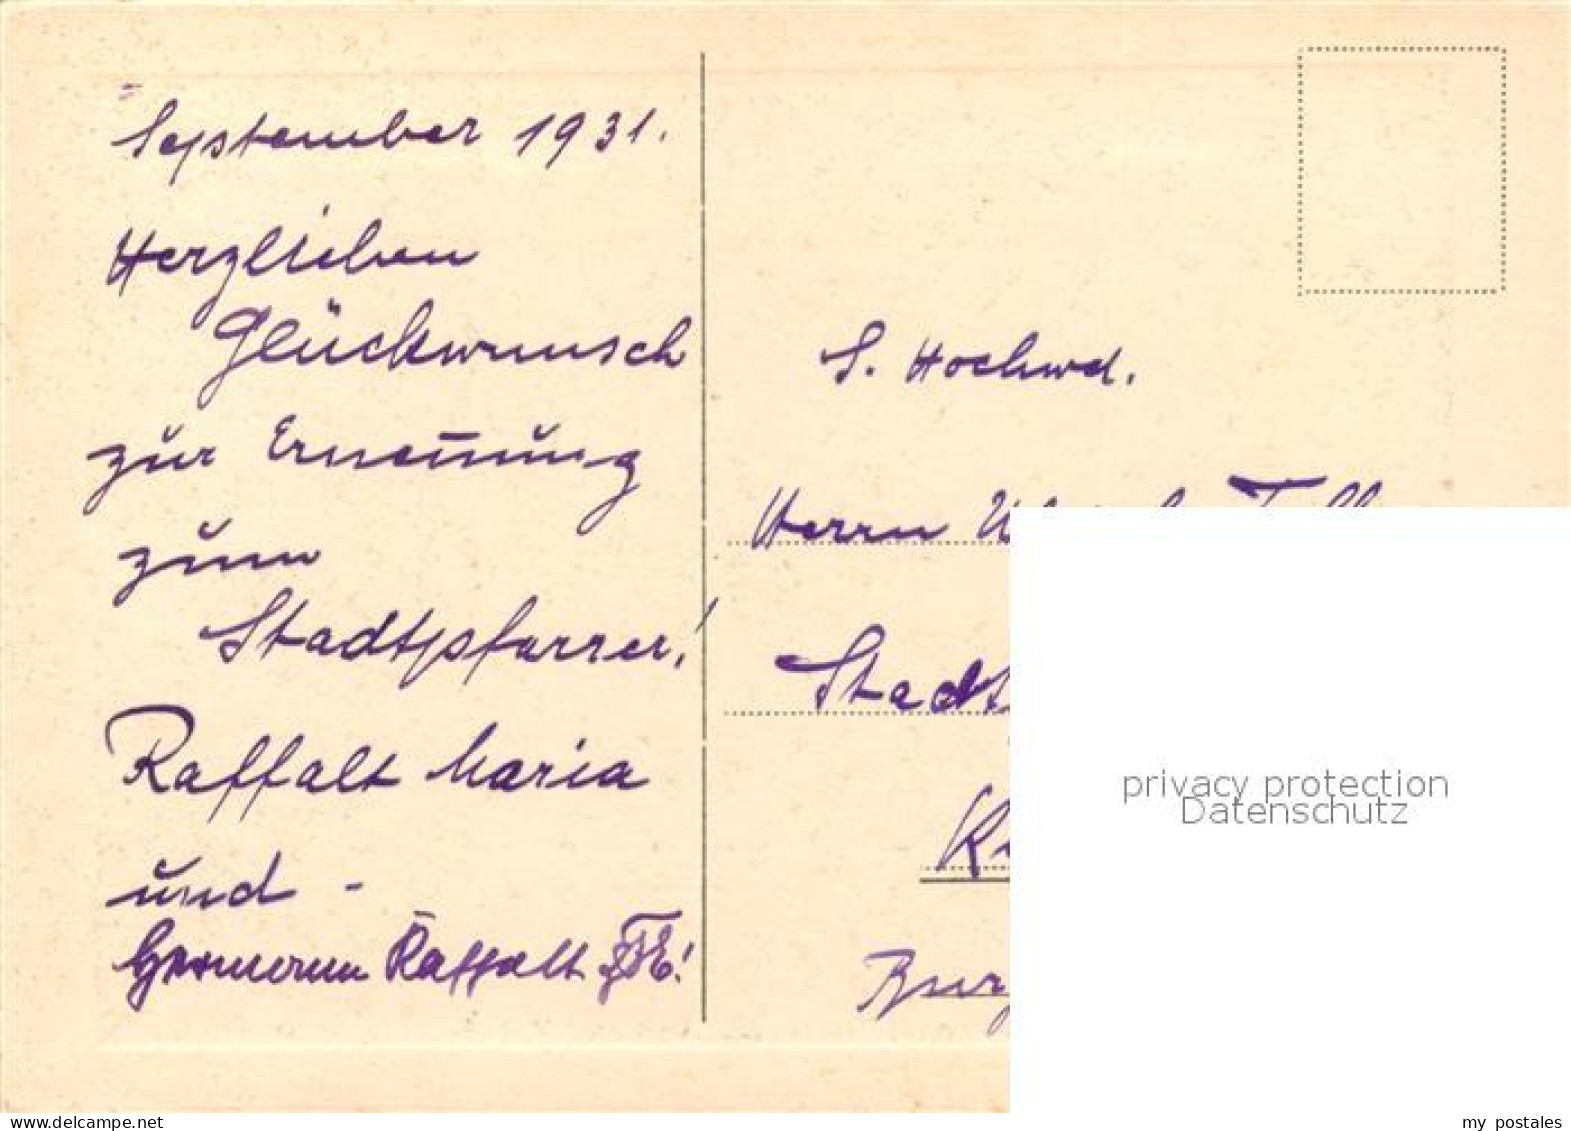 September 1931.
Herzlichen
Glückwunsch
zur Ernennung
zum
Stadtpfarrer!
Raffalt Maria
und -
Germann Raffalt
S. Hochwd.
Herrn
Stadt
privacy protection
Datenschutz
my_postales